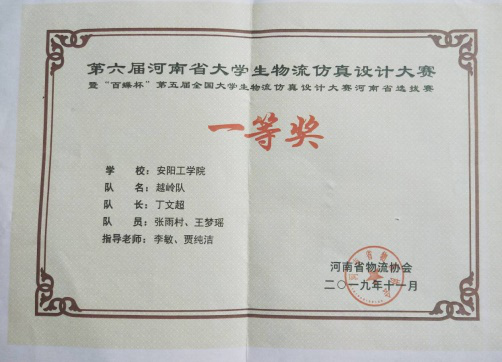 第六届河南省大学生物流仿真设计大赛
暨“百蝶杯”第五届全国大学生物流仿真设计大赛河南省选拔赛
一等奖
学 校：安阳工学院
队 名：越岭队
队 长：丁文超
队 员：张雨村、王梦瑶
指导老师：李敏、贾纯洁
河南省物流协会
二〇一九年十一月